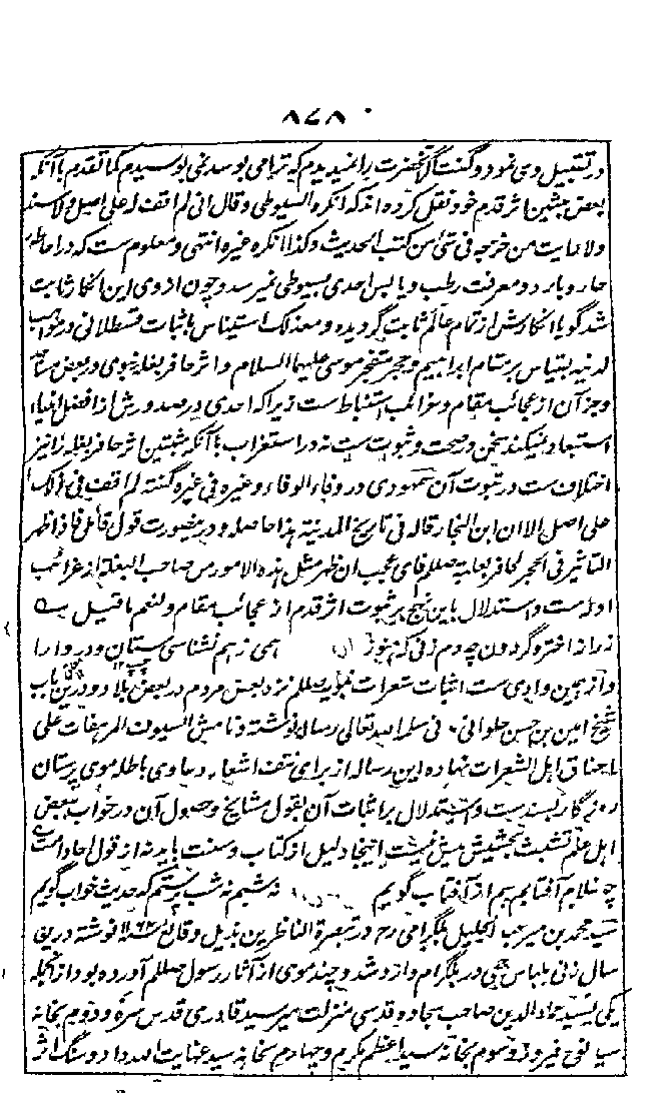 ۸۷۸
در تقبیل وی نمود و گفت اگر آنحضرت را نمیدیدم که ترا می بوسد نمی بوسیدم کما تقدم با آنکه
بعض مثبتین اثر قدم خود نقل کرده اند که انکره السیوطی و قال انی لم اقف له علی اصل ولا سند
ولا رایت من خرجه فی شئ من کتب الحدیث و کذا انکره غیره انتهی و معلوم ست که در احاطه
حار و بارد و معرفت رطب و یابس احدی بسیوطی نمیرسد و چون از وی این انکار ثابت
شد گویا انکارش از تمام عالم ثابت گردیده و معذلک استیناس باثبات قسطلانی در مواهب
لدنیه بقیاس بر مقام ابراهیم و حجر متفجر موسی علیهما السلام و اثر حافر بغله نبوی در بعض مساجد
و جز آن از عجائب مقام و غرائب استنباط ست زیرا که احدی در صدورش از افضل انبیاء
استبعاد نمیکند سخن در صحت و ثبوت ست نه در استغراب با آنکه مثبتین اثر حافر بغله را نیز
اختلاف ست در ثبوت آن سمهودی در وفاء الوفاء و غیره فی غیره گفته لم اقف فی ذلک
علی اصل الا ان ابن النجار قاله فی تاریخ المدینة هذا حاصله و درینصورت قول قائل فاذا ظهر
التاثیر فی الحجر لحافر بغلته صللم فای عجب ان ظهر مثل هذه الامور من صاحب البغلة از غرائب
اوست و استدلال باین نهج بر ثبوت اثر قدم از عجائب مقام ولنعم ما قیل
ز راز اختر و گردون چه دم زنی که هنوز همی ز هم نشناسی ستان و دروا را
و از همین وادی ست اثبات شعرات نبویه صللم نزد بعض مردم در بعض بلاد و درین باب
شیخ امین بن حسن حلوانی مدنی سلمه الله تعالی رساله نوشته و نامش السیوف المرهفات علی
اعناق اهل الشعرات نهاده این رساله از برای نتف اشعار دعاوی باطله موی پرستان
روزگار بسندست و استدلال بر اثبات آن بقول مشایخ و حصول آن در خواب بعض
اهل علم تشبث بحشیش بیش نیست اینجا دلیل از کتاب و سنت باید نه از قول احاد امت
چو غلام آفتابم هم از آفتاب گویم نه شبم نه شب پرستم که حدیث خواب گویم
سید محمد بن میر عبد الجلیل بلگرامی رح در تبصرة الناظرین بذیل وقائع نوشته درین
سال زنی بلباس در بلگرام وارد شد و چند موی از آثار رسول صللم آورده بود از انجمله
یکی بسید عماد الدین صاحب سجاده قدسی منزلت میر سید قادری قدس سره و دوم بخانه
سید نوح فیروز و سوم بخانه سید اعظم مکرم و چهارم بخانه سید عنایت الله داد و سنگ اثر